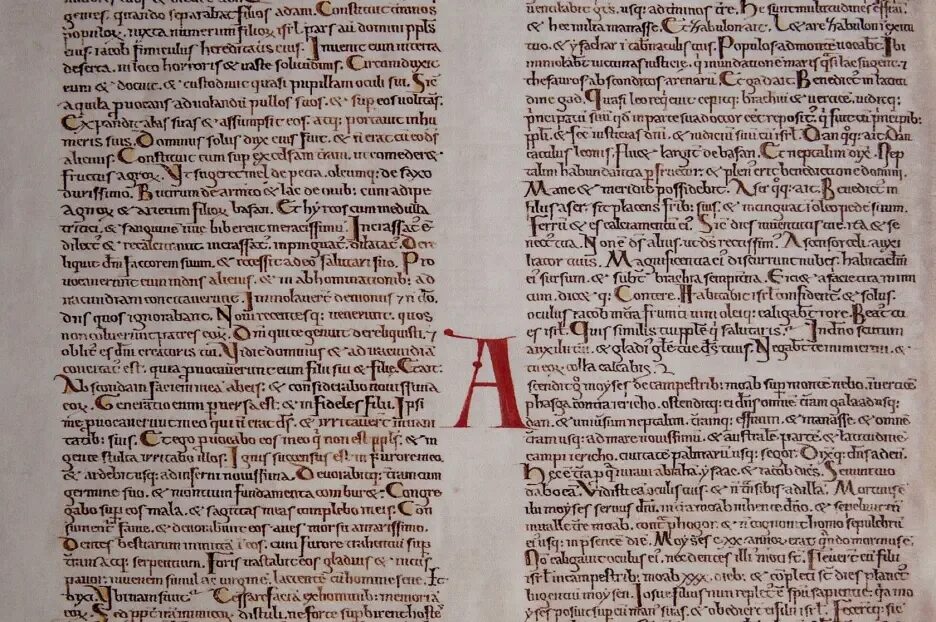 gentes. quando separabat filios adam. Constituit tminos
populoꝝ iuxta numerum filioꝝ isrl. pars aũ domini ppls
eius. iacob funiculus hereditatis eius. Inuenit eum in terra
deserta. in loco horroris & uaste solitudinis. Circumduxit
eum & docuit. & custodiuit quasi pupillam oculi sui. Sic
aquila puocans ad uolandũ pullos suos. & sup eos uolitãs.
Expandit alas suas & assumpsit eos. atq; portauit in hu
meris suis. Dominus solus dux eius fuit. & ñ erat cũ eo ds
alienus. Constituit eum sup excelsam tram. ut comederet
fructus agroꝝ. Vt sugeret mel de petra. oleumq; de saxo
durissimo. Butirum de armento & lac de ouib; cum adipe
agnoꝝ & arietum filioꝝ basan. Et hyrcos cum medulla
tritici. & sanguinẽ uue biberent meracissimũ. Incrassat᷒ ẽ
dilect᷒ & recalcitrauit. incrassat᷒. inpinguat᷒. dilatat᷒. Dere
liquit dm̃ factorem suum. & recessit a deo salutari suo. Pro
uocauerunt eum in diis alienis. & in abhominationib; ad
iracundiam concitauerunt. Immolauer̃t demoniis & ñ dõ.
diis quos ignorabant. Noui recentesq; uenerunt. quos
non coluerunt patres eoꝝ. Dm̃ qui te genuit dereliquisti. &
oblit᷒ es dñi creatoris tui. Vidit dominus & ad iracundiã
concitat᷒ est. quia puocauerunt eum filii sui & filie. Et ait.
Abscondam faciem meã ab eis. & considerabo nouissima
eoꝝ. Generatio enim puersa est. & infideles filii. Ipsi
me puocauer̃t in eo qui ñ erat ds. & irritauer̃t in uani
tatib; suis. Et ego puocabo eos in eo q̃ non est ppls. & in
gente stulta irritabo illos. Ignis succensus est in furore meo.
& ardebit usq; ad inferni nouissima. Deuorabitq; tram cum
germine suo. & montium fundamenta comburet. Congre
gabo sup eos mala. & sagittas meas complebo in eis. Con
sument᷒ fame. & deuorabunt eos aues morsu amarissimo.
Dentes bestiarum inmittã ĩ eos. cum furore trahentiũ sup
tram atq; serpentium. Foris uastabit eos gladius & intus
pauor. iuuenem simul ac uirginẽ. lactentẽ cũ homine sene. Et
dixi. Vbinam sunt? Cessare faciã ex hominib; memoriã
eoꝝ. Sed ppt̃ irã inimicoꝝ distuli. ne forte supbirent hostes
& hec milia manasse. Et zabulon ait. Letare zabulon ĩ exitu
tuo. & ysachar ĩ tabernaculis tuis. Populos ad montẽ uocabt᷒. Ibi
immolabt᷒ uictimas iusticie. q̃ inundationẽ maris q̃si lac sugent. &
thesauros absconditos arenarũ. Et gad ait. Benedict᷒ in latitu
dine gad. Quasi leo requieuit. cepitq; brachiũ & uerticẽ. uiditq;
principatũ suũ qd̃ in parte sua doctor eẽt reposit᷒. q̃ fuit cũ principib;
ppl̃i. & fec̃ iusticias dñi. & iudiciũ suũ cũ isrl. Dan q̃q; ait. Dan
catulus leonis. fluet largit᷒ de basan. Et neptalim dix̃. Nep
talim habundantia pfruet᷒. & plen᷒ erit benedictione domini.
Mare & meridiẽ possidebit. Aser q̃q; ait. Benedict᷒ in
filiis aser. sit placens frib; suis. & tinguat ĩ oleo pedẽ suum.
Ferrũ & es calciamentũ ei᷒. Sic᷒ dies iuuentutis tue. ita & se
nect᷒ tua. Non ẽ ds alius. ut ds rectissimi. Ascensor celi. auxi
liator tuus. Magnificentia ei᷒ discurrunt nubes. habitaclm̃
ei᷒ sursum. & subt᷒ brachia sempitna. Eiciet a facie tua inimi
cum. dicetq;. Contere. Habitabit isrl confident᷒. & solus.
oculus iacob in tra frumti uini oleiq;. caligabt᷒ rore. Beat᷒ tu
es isrl. Quis similis tui pple q̃ saluaris ĩ dño? scutum
auxilii tui. & gladi᷒ gl̃e tue ds tuus. Negabt᷒ te inimici tui. &
tu eoꝝ colla calcabis.
A
scendit q̃ moyses de campestrib; moab sup montẽ nebo. ĩ uerticẽ
phasga contra iericho. ostenditq; ei dñs omnẽ tram galaad usq;
dan. & uniuersum neptalim. tramq; effraim. & manasse. & omnẽ
tram usq; ad mare nouissimũ. & australẽ partẽ. & latitudinẽ
campi iericho. ciuitatẽ palmarũ usq; segor. Dixq; dñs ad eũ.
Hec ẽ tra p q̃ iuraui abrahã. ysaac. & iacob dices. Semini tuo
dabo eã. Vidisti eã oculis tuis. & ñ trãsibis ad illã. Mortuusq; ẽ
ibi moyses seruus dñi. in tra moab iubente dño. & sepeliuit eũ
in ualle tre moab. cont᷒ phogor. & ñ cognouit homo sepulchrũ
ei᷒ usq; in psentẽ diẽ. Moyses c. xx. annoꝝ erat q̃ndo mortuus ẽ.
Nõ caligauit ocul᷒ ei᷒. nec dentes illi᷒ moti st̃. Fleuer̃t eũ filii
isrl. in campestrib; moab xxx. dieb;. & cõpleti st̃ dies planct᷒
lugentiũ moysen. Iosue filius nun replet᷒ ẽ spũ sapientie. q̃a mo
yses posuit sup eũ man᷒ suas. & obedier̃t ei filii isrl. Fecer̃tq; sic᷒